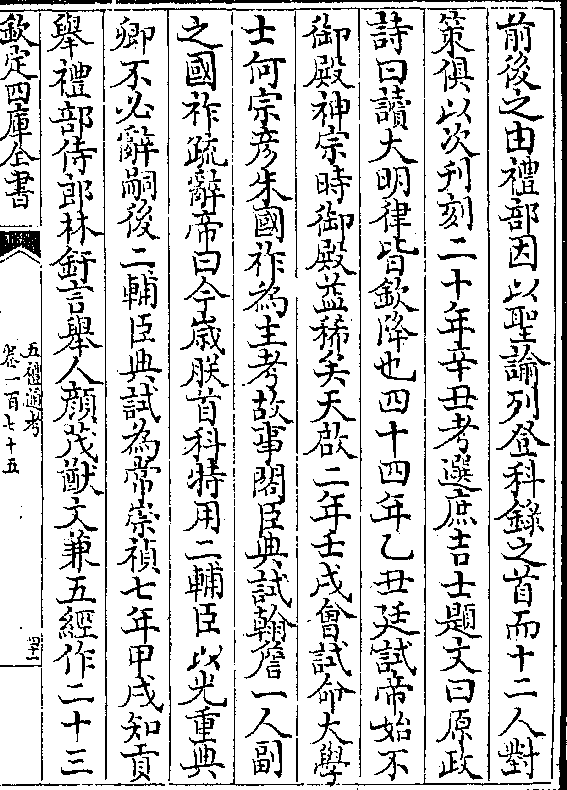 前後之由禮部因以聖論列登科錄之首而十二人對
策俱以次刋刻二十年辛丑考選庶吉士題文曰原政
詩曰讀大明律皆欽降也四十四年乙丑廷試帝始不
御殿神宗時御殿益稀矣天啟二年壬戌會試命大學
士何宗彦朱國祚為主考故事閣臣典試翰詹一人副
之國祚疏辭帝曰今嵗朕首科特用二輔臣以光重典
卿不必辭嗣後二輔臣典試為常崇禎七年甲戌知貢
舉禮部侍郎林釬言舉人顔茂猷文兼五經作二十三
欽定四庫全書
五禮通考
卷一百七十五